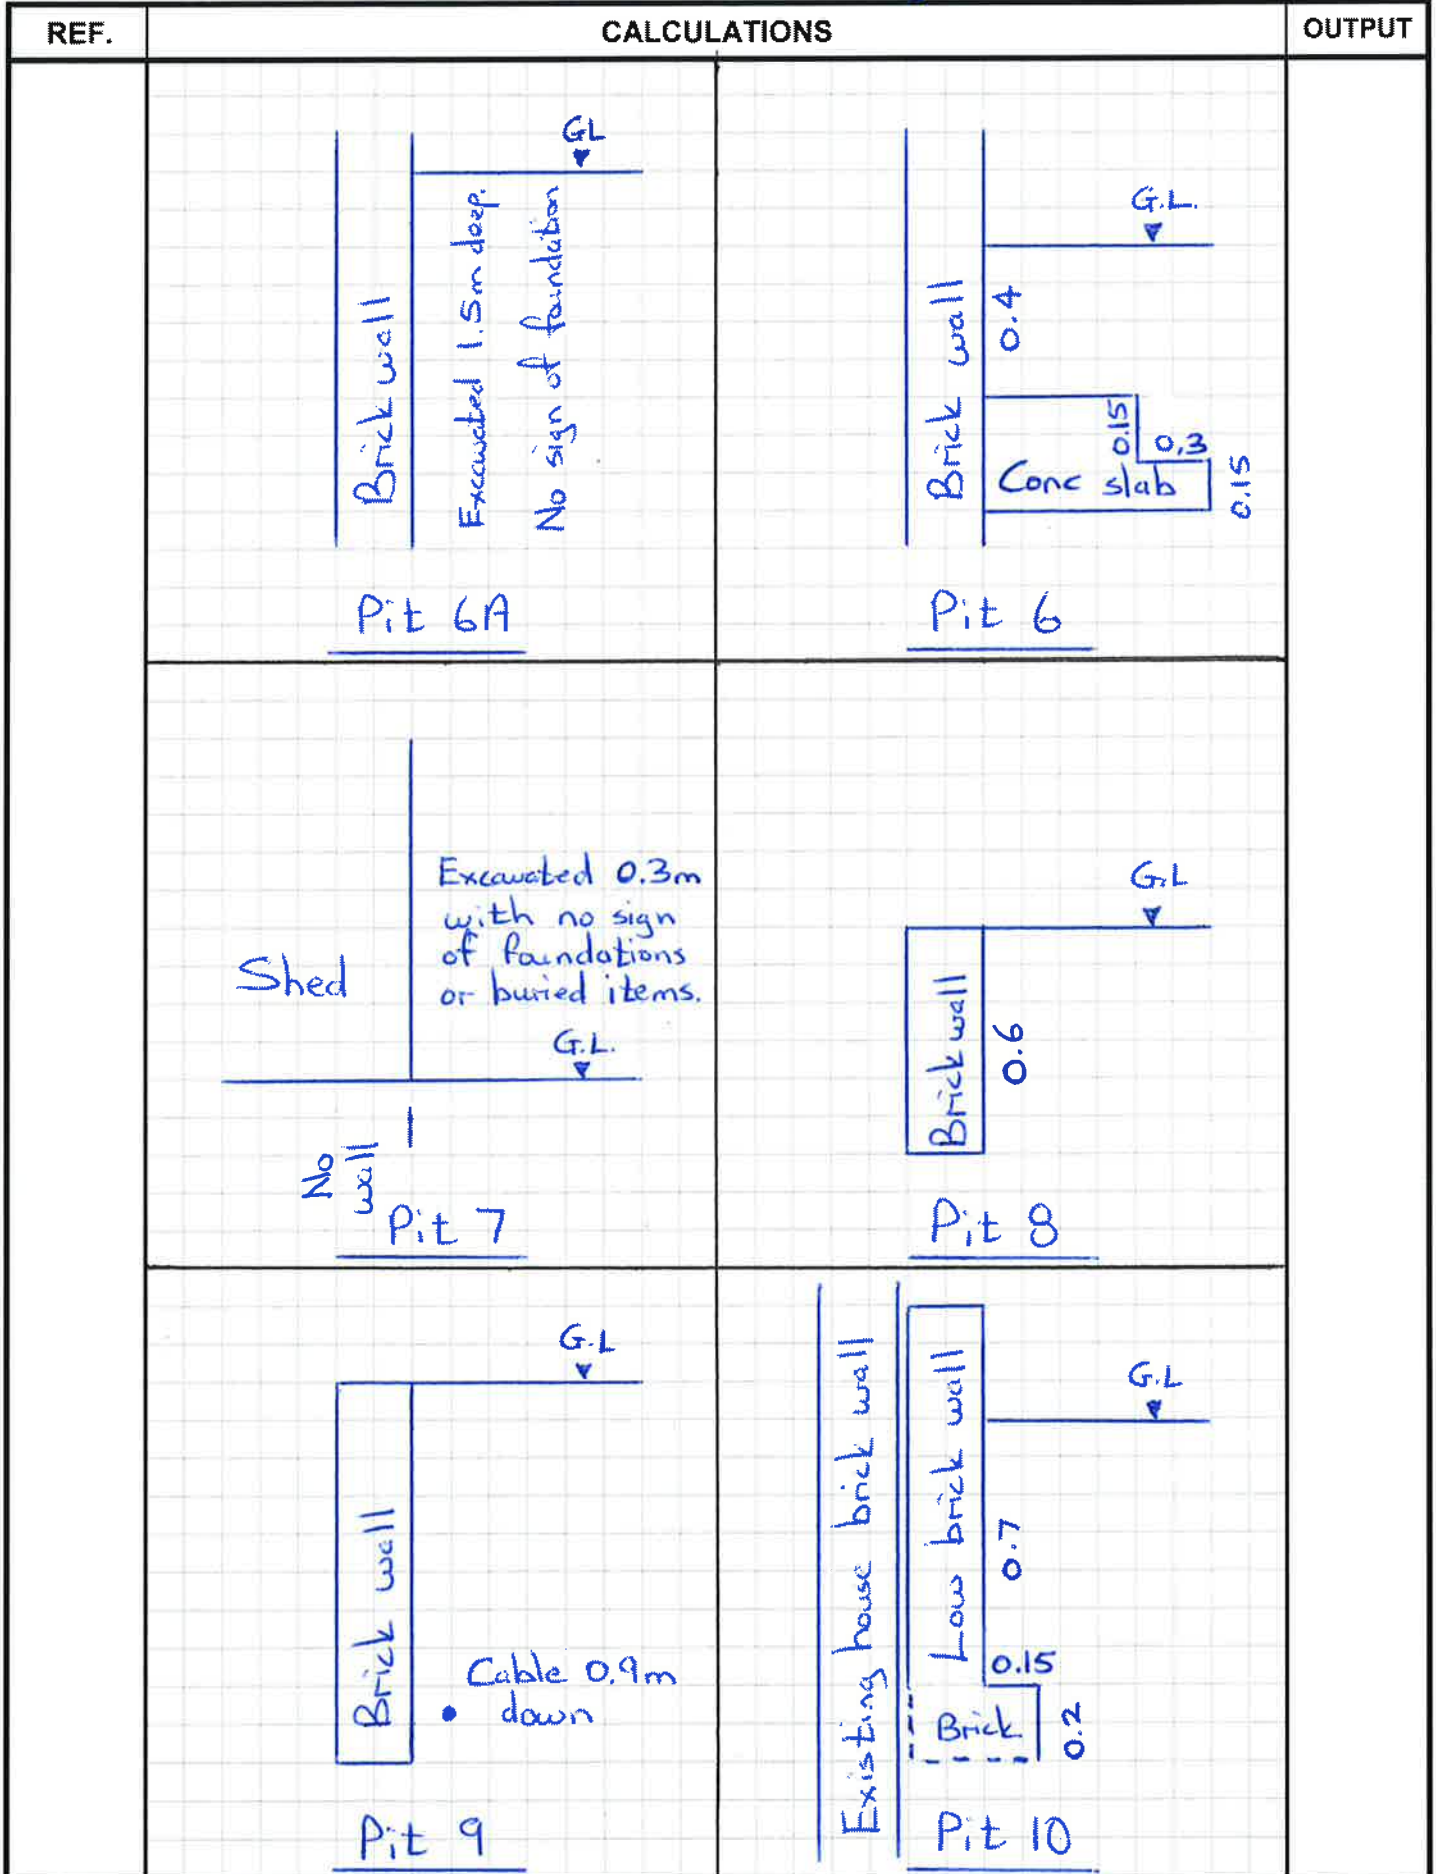 REF.
CALCULATIONS
OUTPUT
GL
Brick wall
Excavated 1.5m deep.
No sign of foundation
Pit 6A
G.L.
Brick wall
0.4
0.15
0.3
Conc slab
0.15
Pit 6
Excavated 0.3m
with no sign
of foundations
or buried items.
Shed
G.L.
No
wall
Pit 7
G.L
Brick wall
0.6
Pit 8
G.L
Brick wall
Cable 0.9m
down
Pit 9
Existing house brick wall
Low brick wall
G.L
0.7
0.15
Brick
0.2
Pit 10